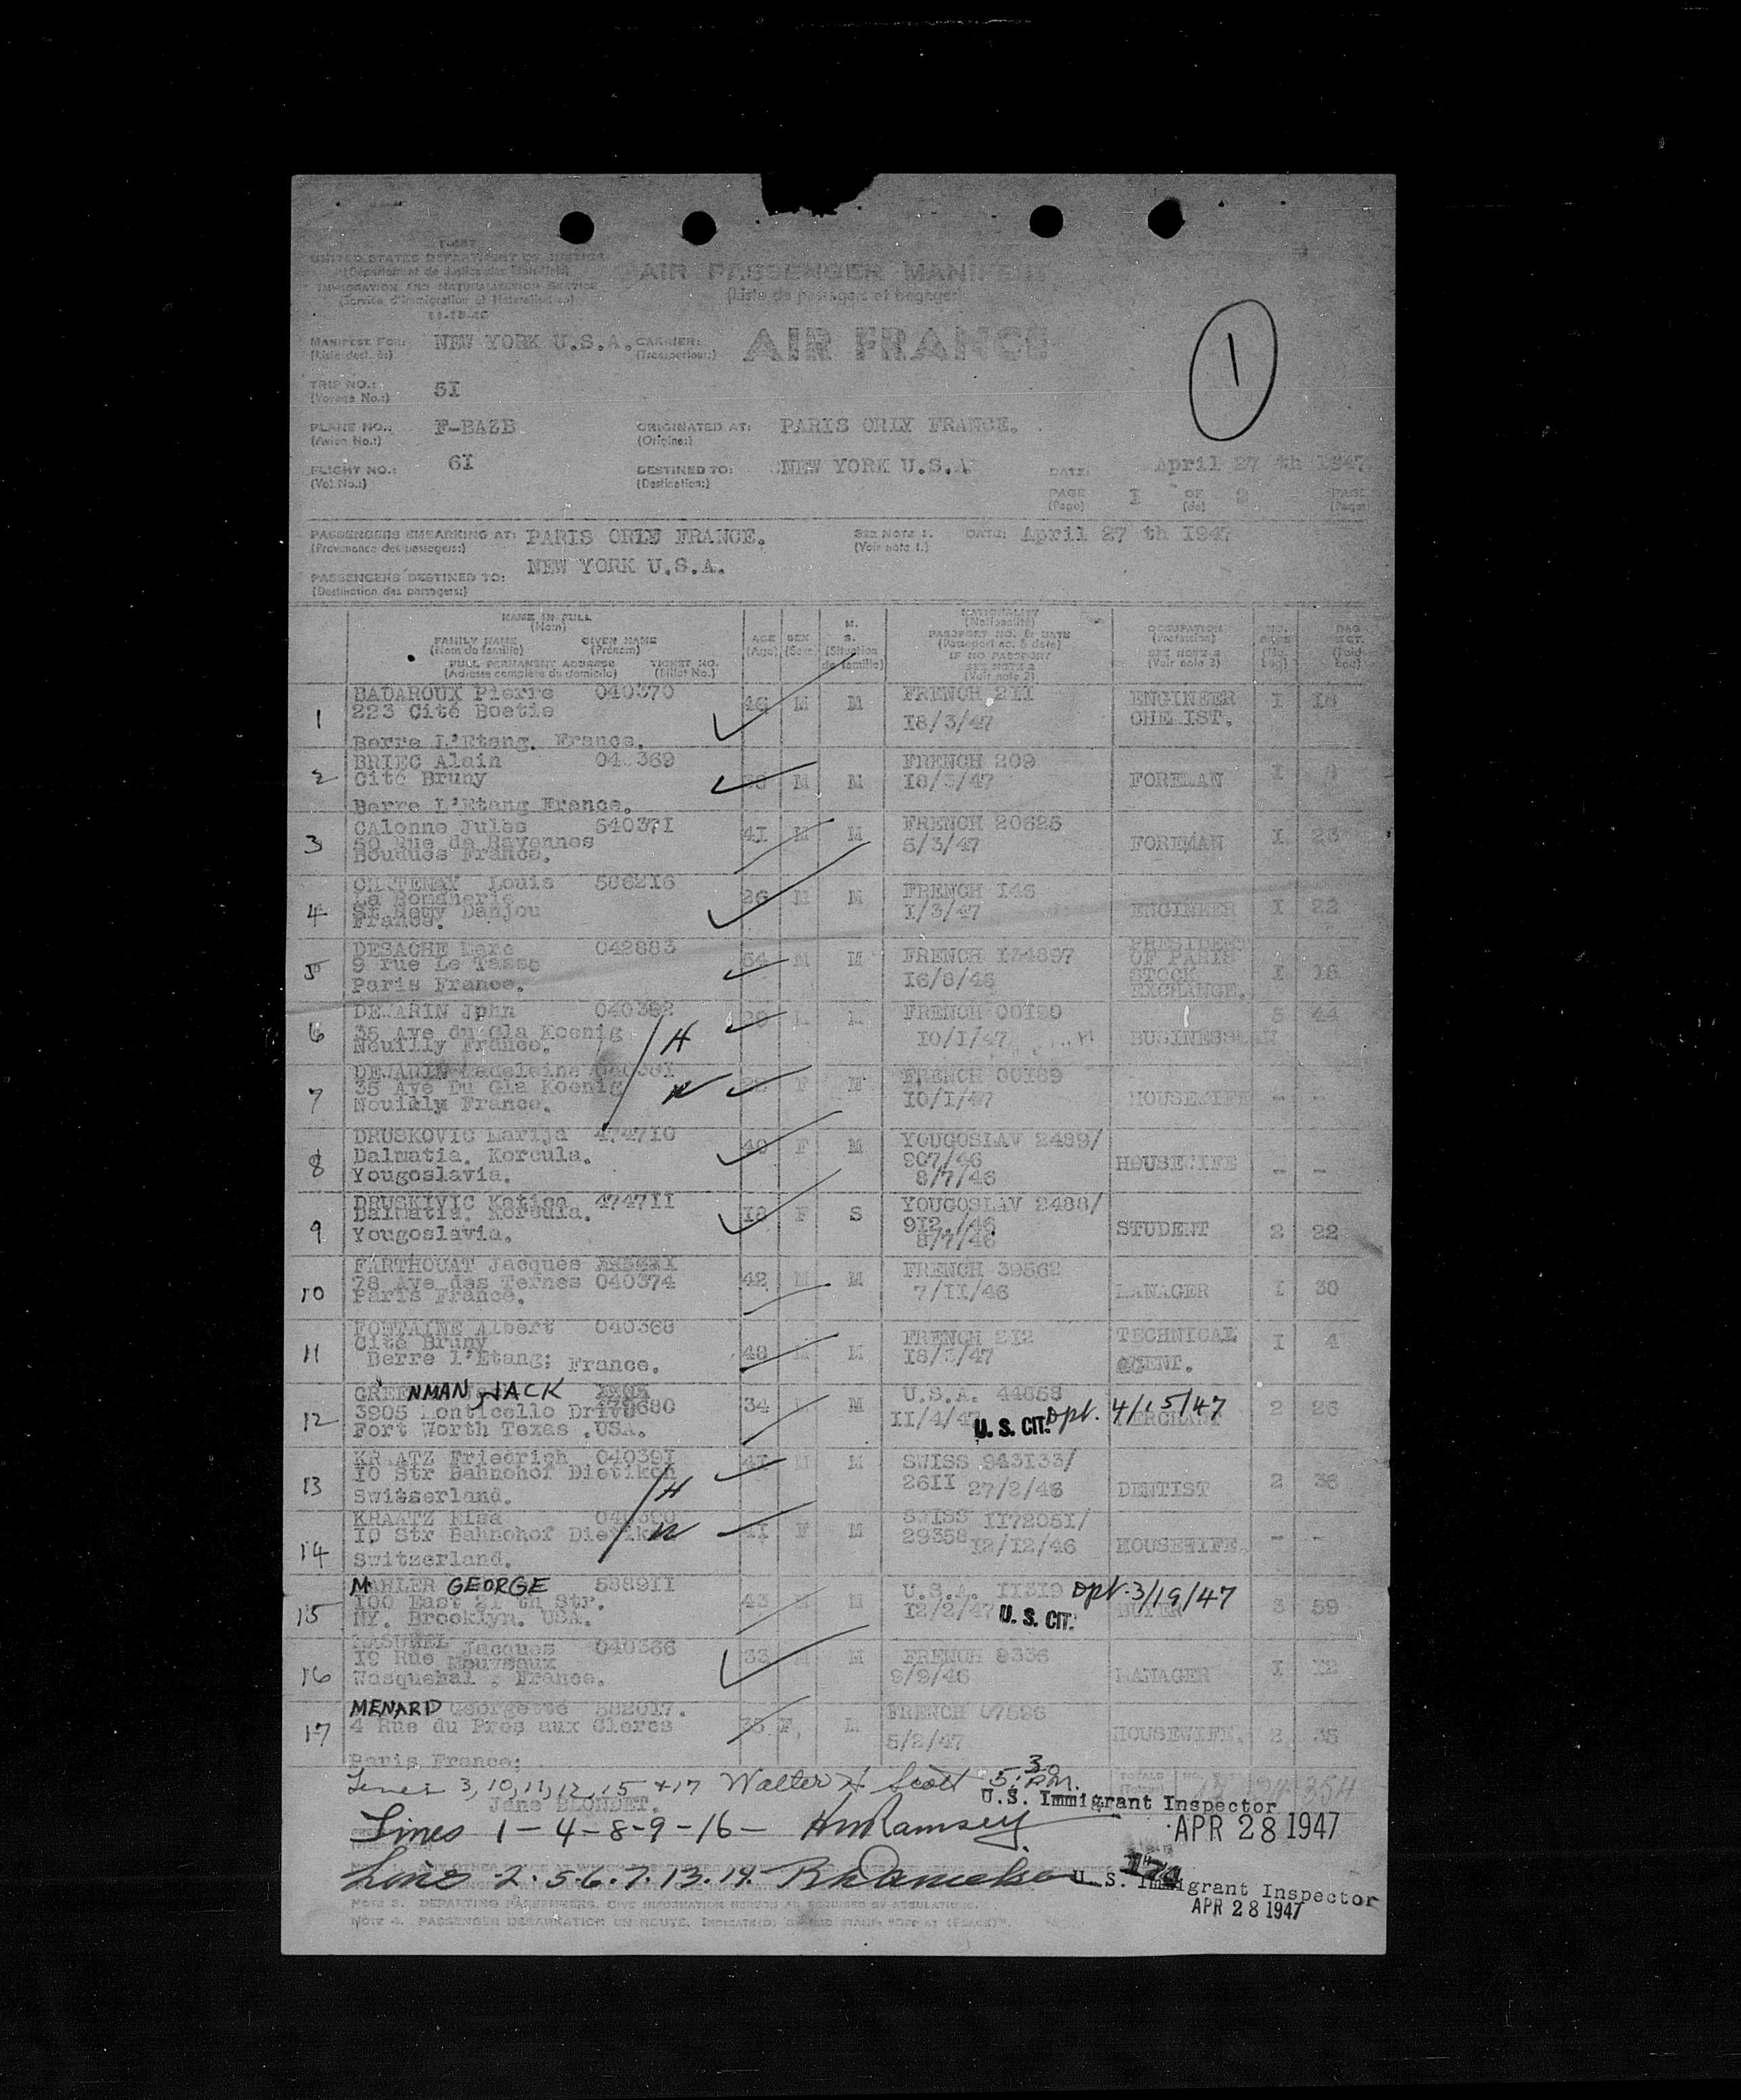 I-487
UNITED STATES DEPARTMENT OF JUSTICE
(Département de Justice des Etats-Unis)
IMMIGRATION AND NATURALIZATION SERVICE
(Service d'Immigration et Naturalisation)
11-18-46
AIR PASSENGER MANIFEST
(Liste de passagers et bagages)
MANIFEST FOR: NEW YORK U.S.A. CARRIER: AIR FRANCE
(Liste dest. à:) (Transporteur:)
1
TRIP NO.: 5I
(Voyage No.:)
PLANE NO.: F-BAZB ORIGINATED AT: PARIS ORLY FRANCE.
(Avion No.:) (Origine:)
FLIGHT NO.: 6I DESTINED TO: NEW YORK U.S.A DATE: April 27 th 1947
(Vol No.:) (Destination:)
PAGE 1 OF 2 PAGE
(Page) (de) (Pages)
PASSENGERS EMBARKING AT: PARIS ORLY FRANCE. SEE NOTE 1. DATE: April 27 th 1947
(Provenance des passagers:) (Voir note 1.)
PASSENGERS DESTINED TO: NEW YORK U.S.A.
(Destination des passagers:)
NAME IN FULL
(Nom)
FAMILY NAME GIVEN NAME
(Nom de famille) (Prénom)
FULL PERMANENT ADDRESS TICKET NO.
(Adresse complète du domicile) (Billet No.)
AGE
(Age)
SEX
(Sexe)
M.
S.
(Situation de famille)
NATIONALITY
(Nationalité)
PASSPORT NO. & DATE
(Passeport no. & date)
IF NO PASSPORT
SEE NOTE 2
(Voir note 2)
OCCUPATION
(Profession)
SEE NOTE 3
(Voir note 3)
1 BADAROUX Pierre 040370 46 M M FRENCH 2II ENGINEER I 18
223 Cité Boetie 18/3/47 CHEMIST.
Berre L'Etang. France.
2 BRIEC Alain 04 369 M M FRENCH 209 FOREMAN I
Cité Bruny I8/3/47
Berre L'Etang France.
3 CAlonne Jules 54037I 4I M M FRENCH 20625 FOREMAN I 23
50 Rue de Bavennes 5/3/47
France.
4 Louis 506216 26 M M FRENCH I46 ENGINEER I 22
St Remy Danjou I/3/47
France.
5 DESACHE Marc 042883 54 M M FRENCH I34897 PRESIDENT OF PARIS STOCK EXCHANGE. I I6
9 rue Le Tasse I6/8/46
Paris France.
6 DEJARIN Jphn 040382 FRENCH 00I90 BUSINESSMAN 5 44
35 Ave du Gla Koenig H I0/I/47
Neuilly France.
7 DEJARIN Madeleine F M FRENCH 00I89 HOUSEWIFE - -
35 Ave Du Gla Koenig W I0/I/47
Neuilly France.
8 DRUSKOVIC Marija 4747I0 40 F M YOUGOSLAV 2489/ HOUSEWIFE - -
Dalmatia. Korcula. 907/46
Yougoslavia. 8/7/46
9 DRUSKIVIC Katica 4747II I8 F S YOUGOSLAV 2488/ STUDENT 2 22
Dalmatia. Korcula. 9I2./46
Yougoslavia. 8/7/46
10 FARTHOUAT Jacques 42 M M FRENCH 39562 MANAGER I 30
78 Ave des Ternes 040374 7/II/46
Paris France.
11 FONTAINE Albert 040368 48 M M FRENCH 2I2 TECHNICAL AGENT. I 4
Cité Bruny I8/3/47
Berre l'Etang; France.
12 GREENMAN, JACK 34 M U.S.A. 44658 MERCHANT 2 26
3905 Monticello Drive II/4/47 U. S. CIT. Dpt. 4/15/47
Fort Worth Texas .USA.
13 KRAATZ Friedrich 04039I 4I M M SWISS 943I33/ DENTIST 2 36
I0 Str Bahnohof Dietikon H 26II 27/2/46
Switserland.
14 KRAATZ Elsa 040390 4I F M SWISS II7205I/ HOUSEWIFE - -
I0 Str Bahnohof Dietikon W 29358 I2/I2/46
Switzerland.
15 MAHLER GEORGE 5389II 43 M M U.S.A. II3I9 BUYER 3 59
I00 East 2I th Str. I2/2/47 U. S. CIT. Dpt. 3/19/47
NY. Brooklyn. USA.
16 MASUREL Jacques 040366 33 M M FRENCH 9336 MANAGER I I2
I9 Rue Mouvaux 9/9/46
Wasquehal . France.
17 MENARD Georgette 5820I7. 35 F, M FRENCH 07896 HOUSEWIFE. 2 35
4 Rue du Pres aux Clercs 5/2/47
Paris France;
Lines 3, 10, 11, 12, 15 + 17 Walter H Scott 5:30 P.M.
TOTALS 17 24 354
Jane BLONDET.
U.S. Immigrant Inspector
Lines 1 - 4 - 8 - 9 - 16 - HM Ramsey APR 28 1947
Line 2. 5. 6. 7. 13. 14.
U.S. Immigrant Inspector
APR 28 1947
NOTE 3. DEPARTING PASSENGERS. GIVE INFORMATION HEREON AS REQUIRED BY REGULATIONS.
NOTE 4. PASSENGER DESTINATION EN ROUTE.